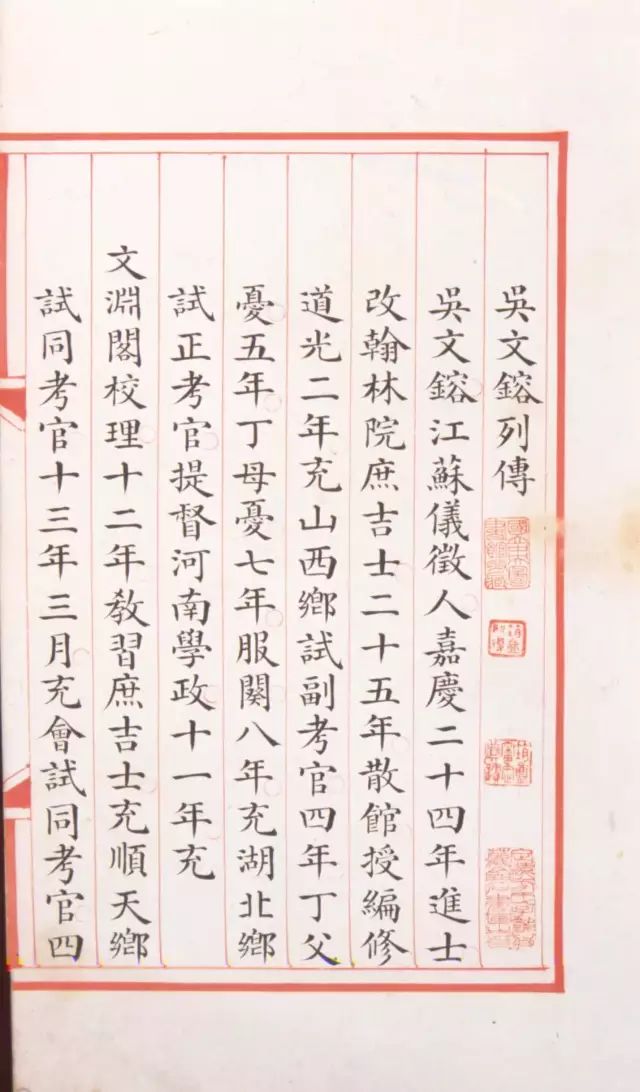 吳文鎔列傳
吳文鎔江蘇儀徵人嘉慶二十四年進士
改翰林院庶吉士二十五年散館授編修
道光二年充山西鄉試副考官四年丁父
憂五年丁母憂七年服闋八年充湖北鄉
試正考官提督河南學政十一年充
文淵閣校理十二年教習庶吉士充順天鄉
試同考官十三年三月充會試同考官四